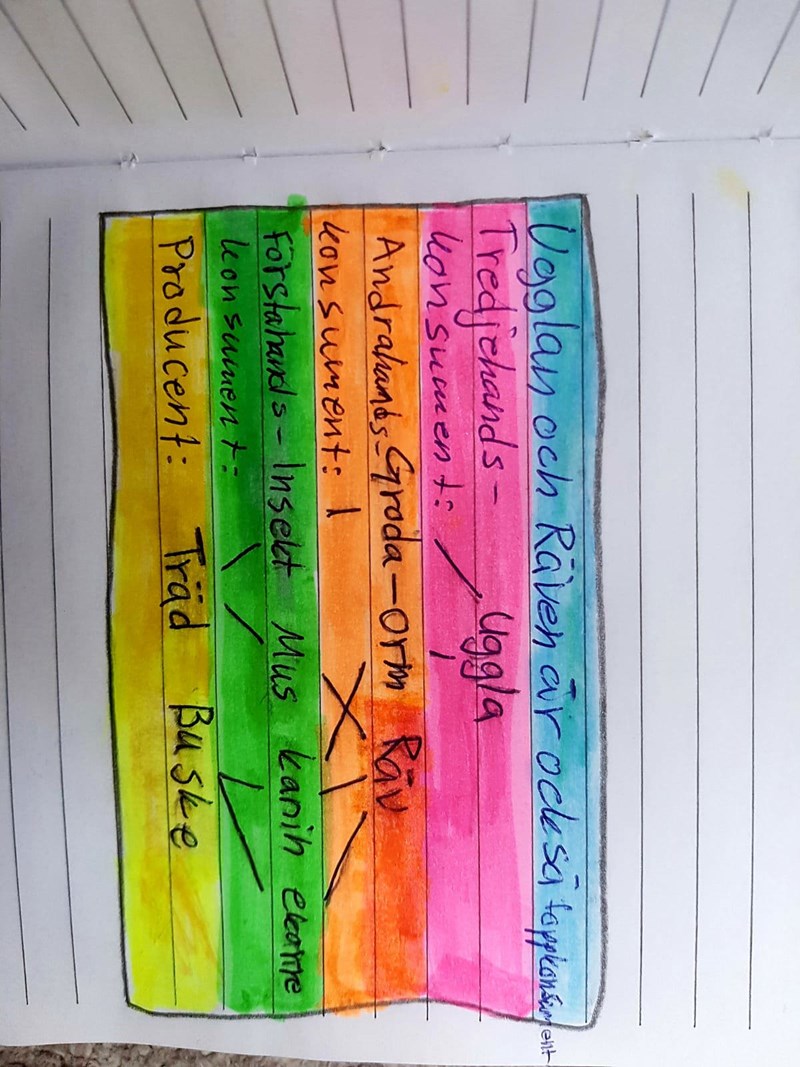 Ugglan och Räven är också toppkonsument
Tredjehands-
konsument: Uggla
Andrahands- Groda-orm Räv
konsument:
Förstahands- Insekt Mus kanin ekorre
konsument:
Producent: Träd Buske